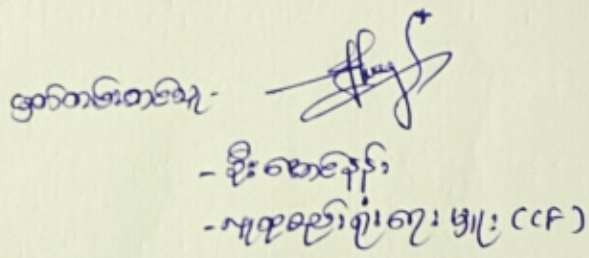 မှတ်တမ်းတင်သူ -
- ဦးအောင်နန်း
- လူထုစည်းရုံးရေးမှူး (CF)